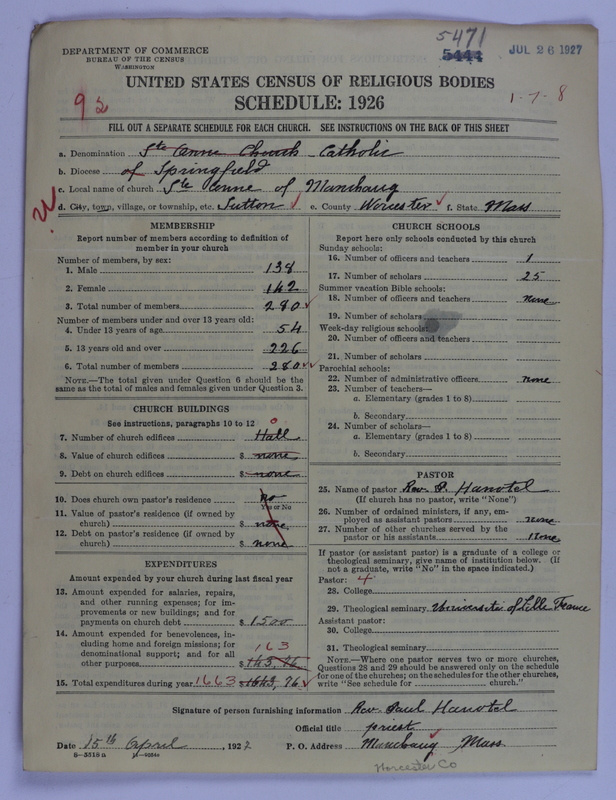 5471
5444
JUL 26 1927
DEPARTMENT OF COMMERCE
BUREAU OF THE CENSUS
WASHINGTON
UNITED STATES CENSUS OF RELIGIOUS BODIES
SCHEDULE: 1926
92
1-7-8
FILL OUT A SEPARATE SCHEDULE FOR EACH CHURCH. SEE INSTRUCTIONS ON THE BACK OF THIS SHEET
a. Denomination Ste Anne Church Catholic
b. Diocese of Springfield
c. Local name of church Ste Anne of Manchaug
d. City, town, village, or township, etc. Sutton e. County Worcester f. State Mass
MEMBERSHIP
Report number of members according to definition of member in your church
Number of members, by sex:
1. Male 138
2. Female 142
3. Total number of members 280
Number of members under and over 13 years old:
4. Under 13 years of age 54
5. 13 years old and over 226
6. Total number of members 280
NOTE.—The total given under Question 6 should be the same as the total of males and females given under Question 3.
CHURCH BUILDINGS
See instructions, paragraphs 10 to 12
0
7. Number of church edifices Hall
8. Value of church edifices $ none
9. Debt on church edifices $ none
10. Does church own pastor's residence no
Yes or No
11. Value of pastor's residence (if owned by church) $ none
12. Debt on pastor's residence (if owned by church) $ none
EXPENDITURES
Amount expended by your church during last fiscal year
13. Amount expended for salaries, repairs, and other running expenses; for improvements or new buildings; and for payments on church debt $ 1500
14. Amount expended for benevolences, including home and foreign missions; for denominational support; and for all other purposes $ 163 143,76
15. Total expenditures during year 1663 1643,76
CHURCH SCHOOLS
Report here only schools conducted by this church
Sunday schools:
16. Number of officers and teachers 1
17. Number of scholars 25
Summer vacation Bible schools:
18. Number of officers and teachers none
19. Number of scholars
Week-day religious schools:
20. Number of officers and teachers
21. Number of scholars
Parochial schools:
22. Number of administrative officers none
23. Number of teachers—
a. Elementary (grades 1 to 8)
b. Secondary
24. Number of scholars—
a. Elementary (grades 1 to 8)
b. Secondary
PASTOR
25. Name of pastor Rev. P. Hanotel
(If church has no pastor, write "None")
26. Number of ordained ministers, if any, employed as assistant pastors none
27. Number of other churches served by the pastor or his assistants none
If pastor (or assistant pastor) is a graduate of a college or theological seminary, give name of institution below. (If not a graduate, write "No" in the space indicated.)
Pastor: 4
28. College
29. Theological seminary Universite of Lille France
Assistant pastor:
30. College
31. Theological seminary
NOTE.—Where one pastor serves two or more churches, Questions 28 and 29 should be answered only on the schedule for one of the churches; on the schedules for the other churches, write "See schedule for church."
Signature of person furnishing information Rev. Paul Hanotel
Official title priest
Date 15th April, 1927 P. O. Address Manchaug Mass
Worcester Co